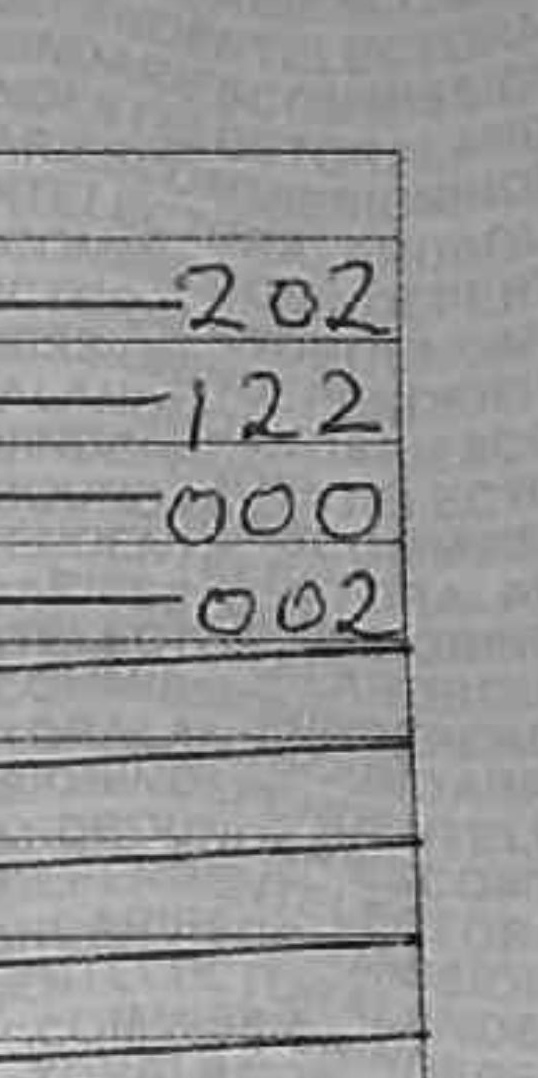 202
122
000
002